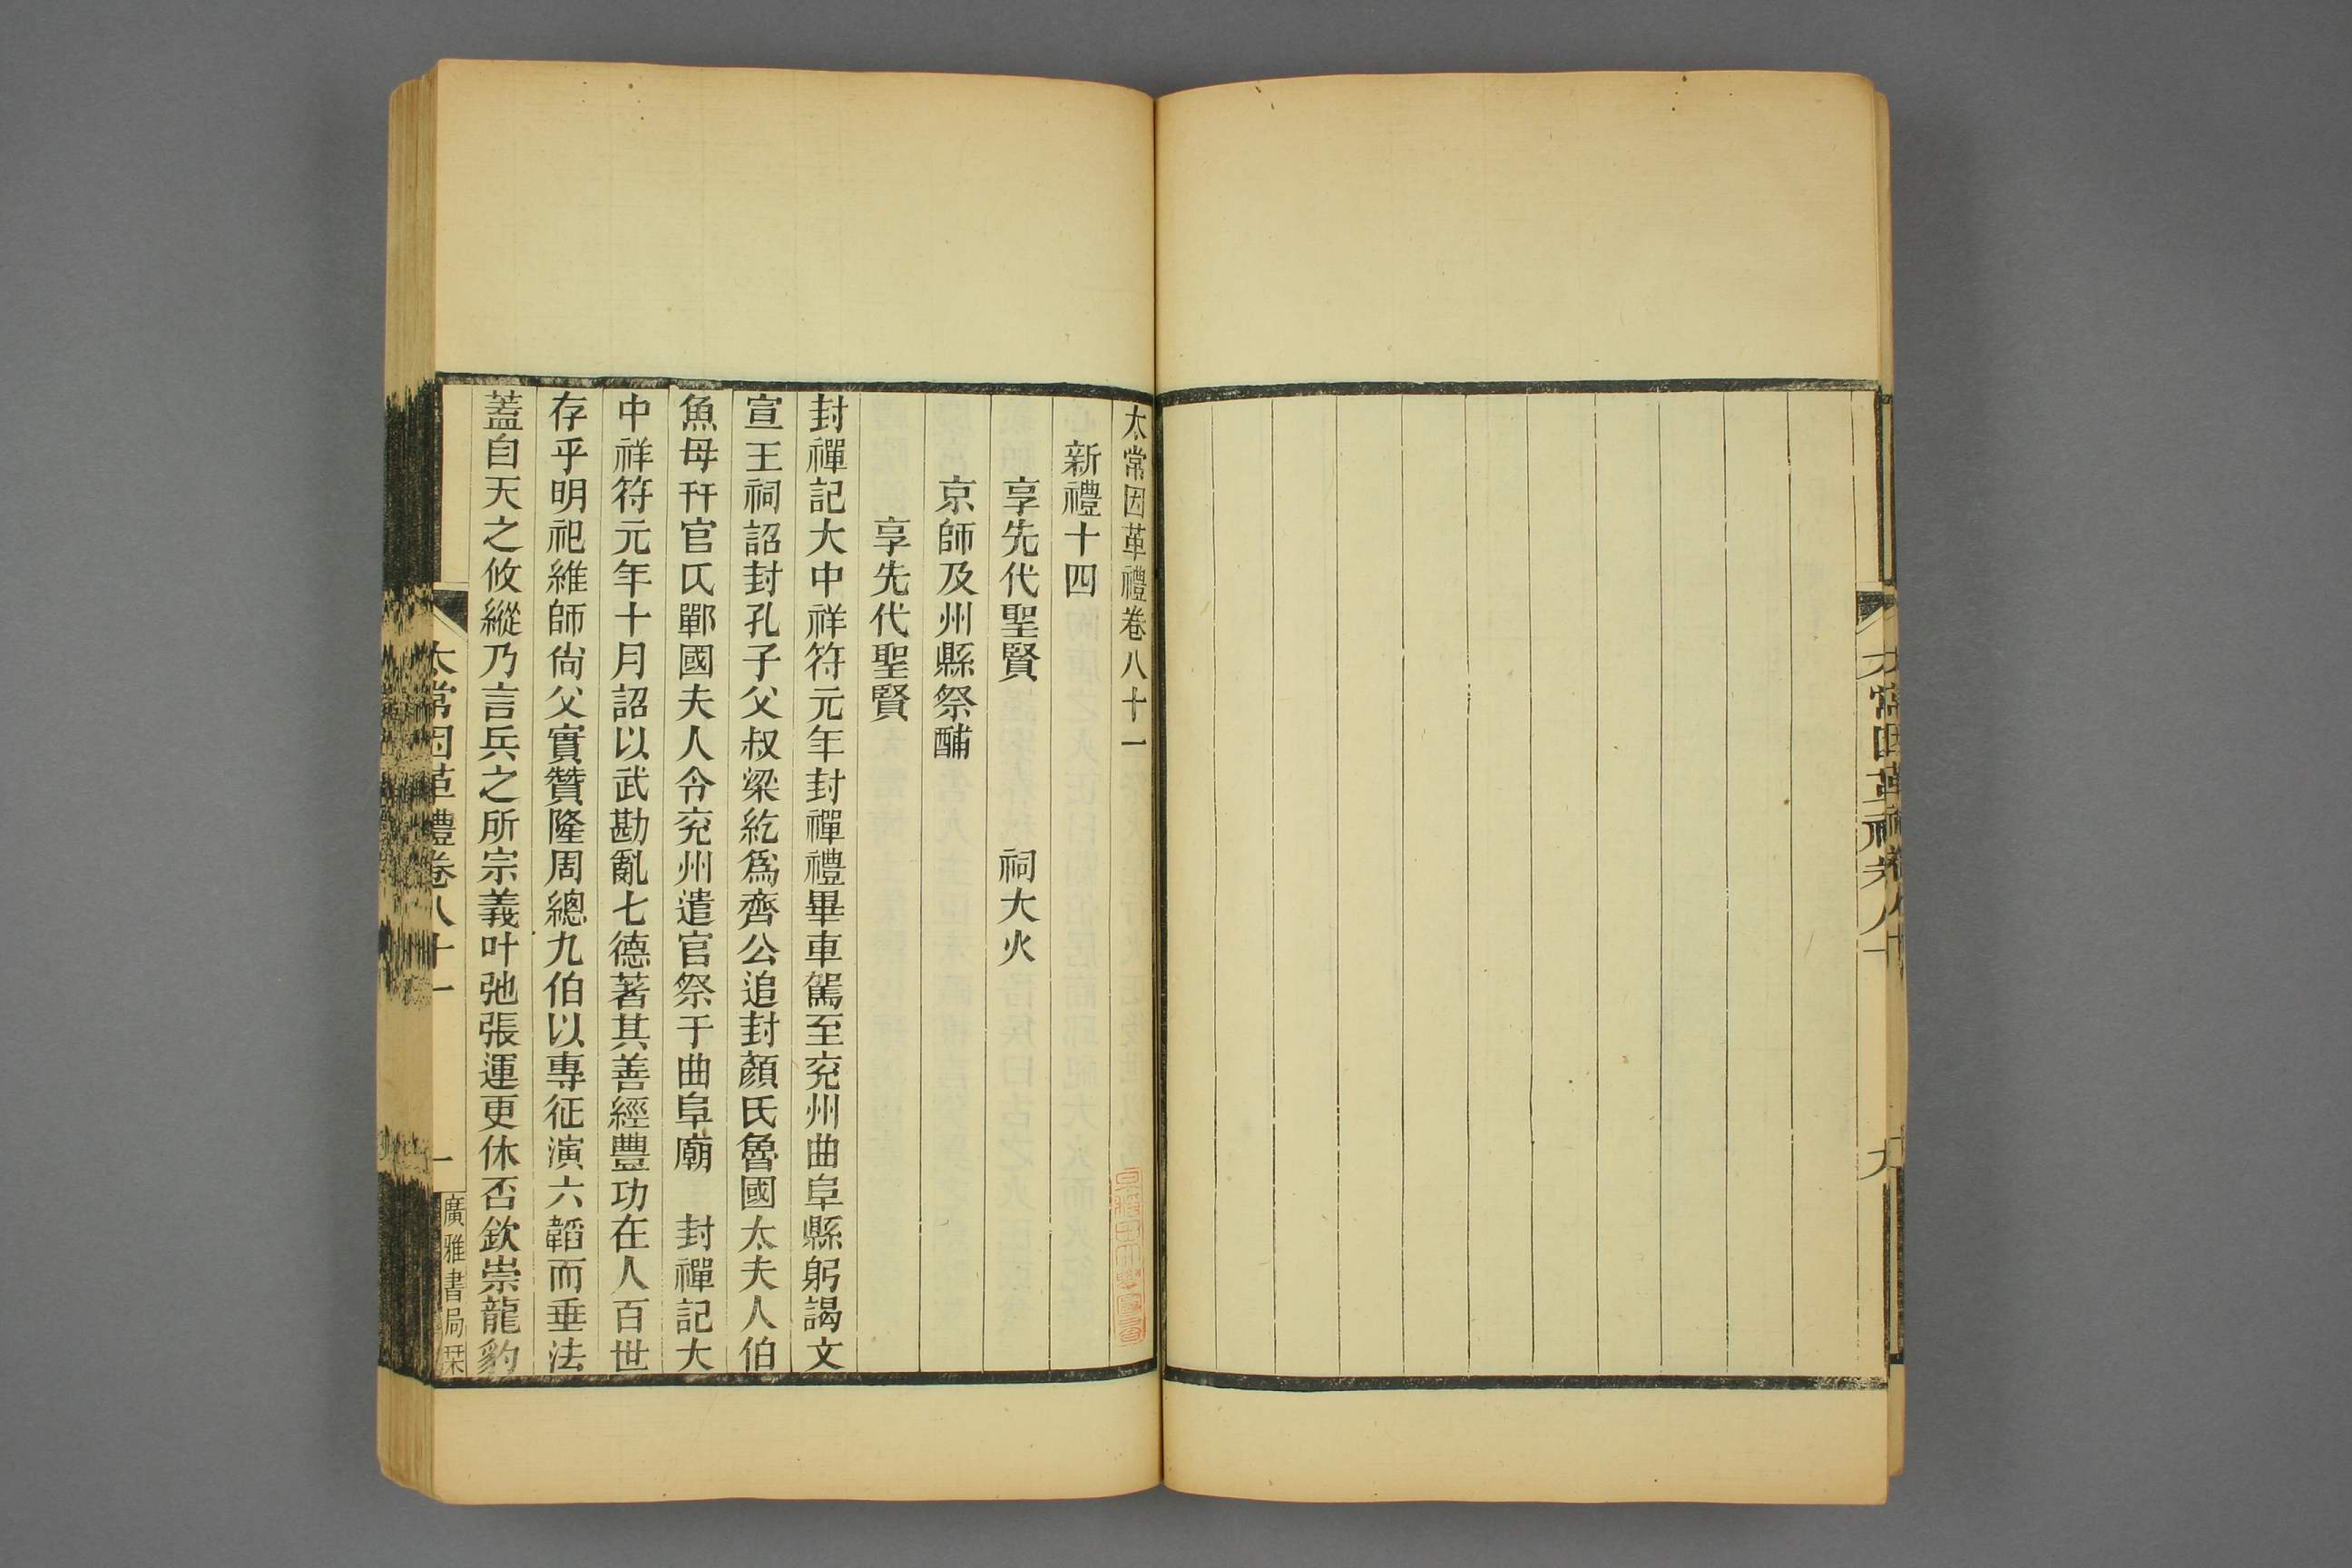 太常因革禮卷八十一
新禮十四
享先代聖賢 祠大火
京師及州縣祭酺
享先代聖賢
封禪記大中祥符元年封禪禮畢車駕至兖州曲阜縣躬謁文
宣王祠詔封孔子父叔梁紇爲齊公追封顏氏魯國太夫人伯
魚母幵官氏鄆國夫人令兖州遣官祭于曲阜廟 封禪記大
中祥符元年十月詔以武勘亂七德著其善經豐功在人百世
存乎明祀維師尙父實贊隆周總九伯以專征演六韜而垂法
蓋自天之攸縱乃言兵之所宗義叶弛張運更休否欽崇龍豹
太常因革禮卷八十一 一
廣雅書局栞